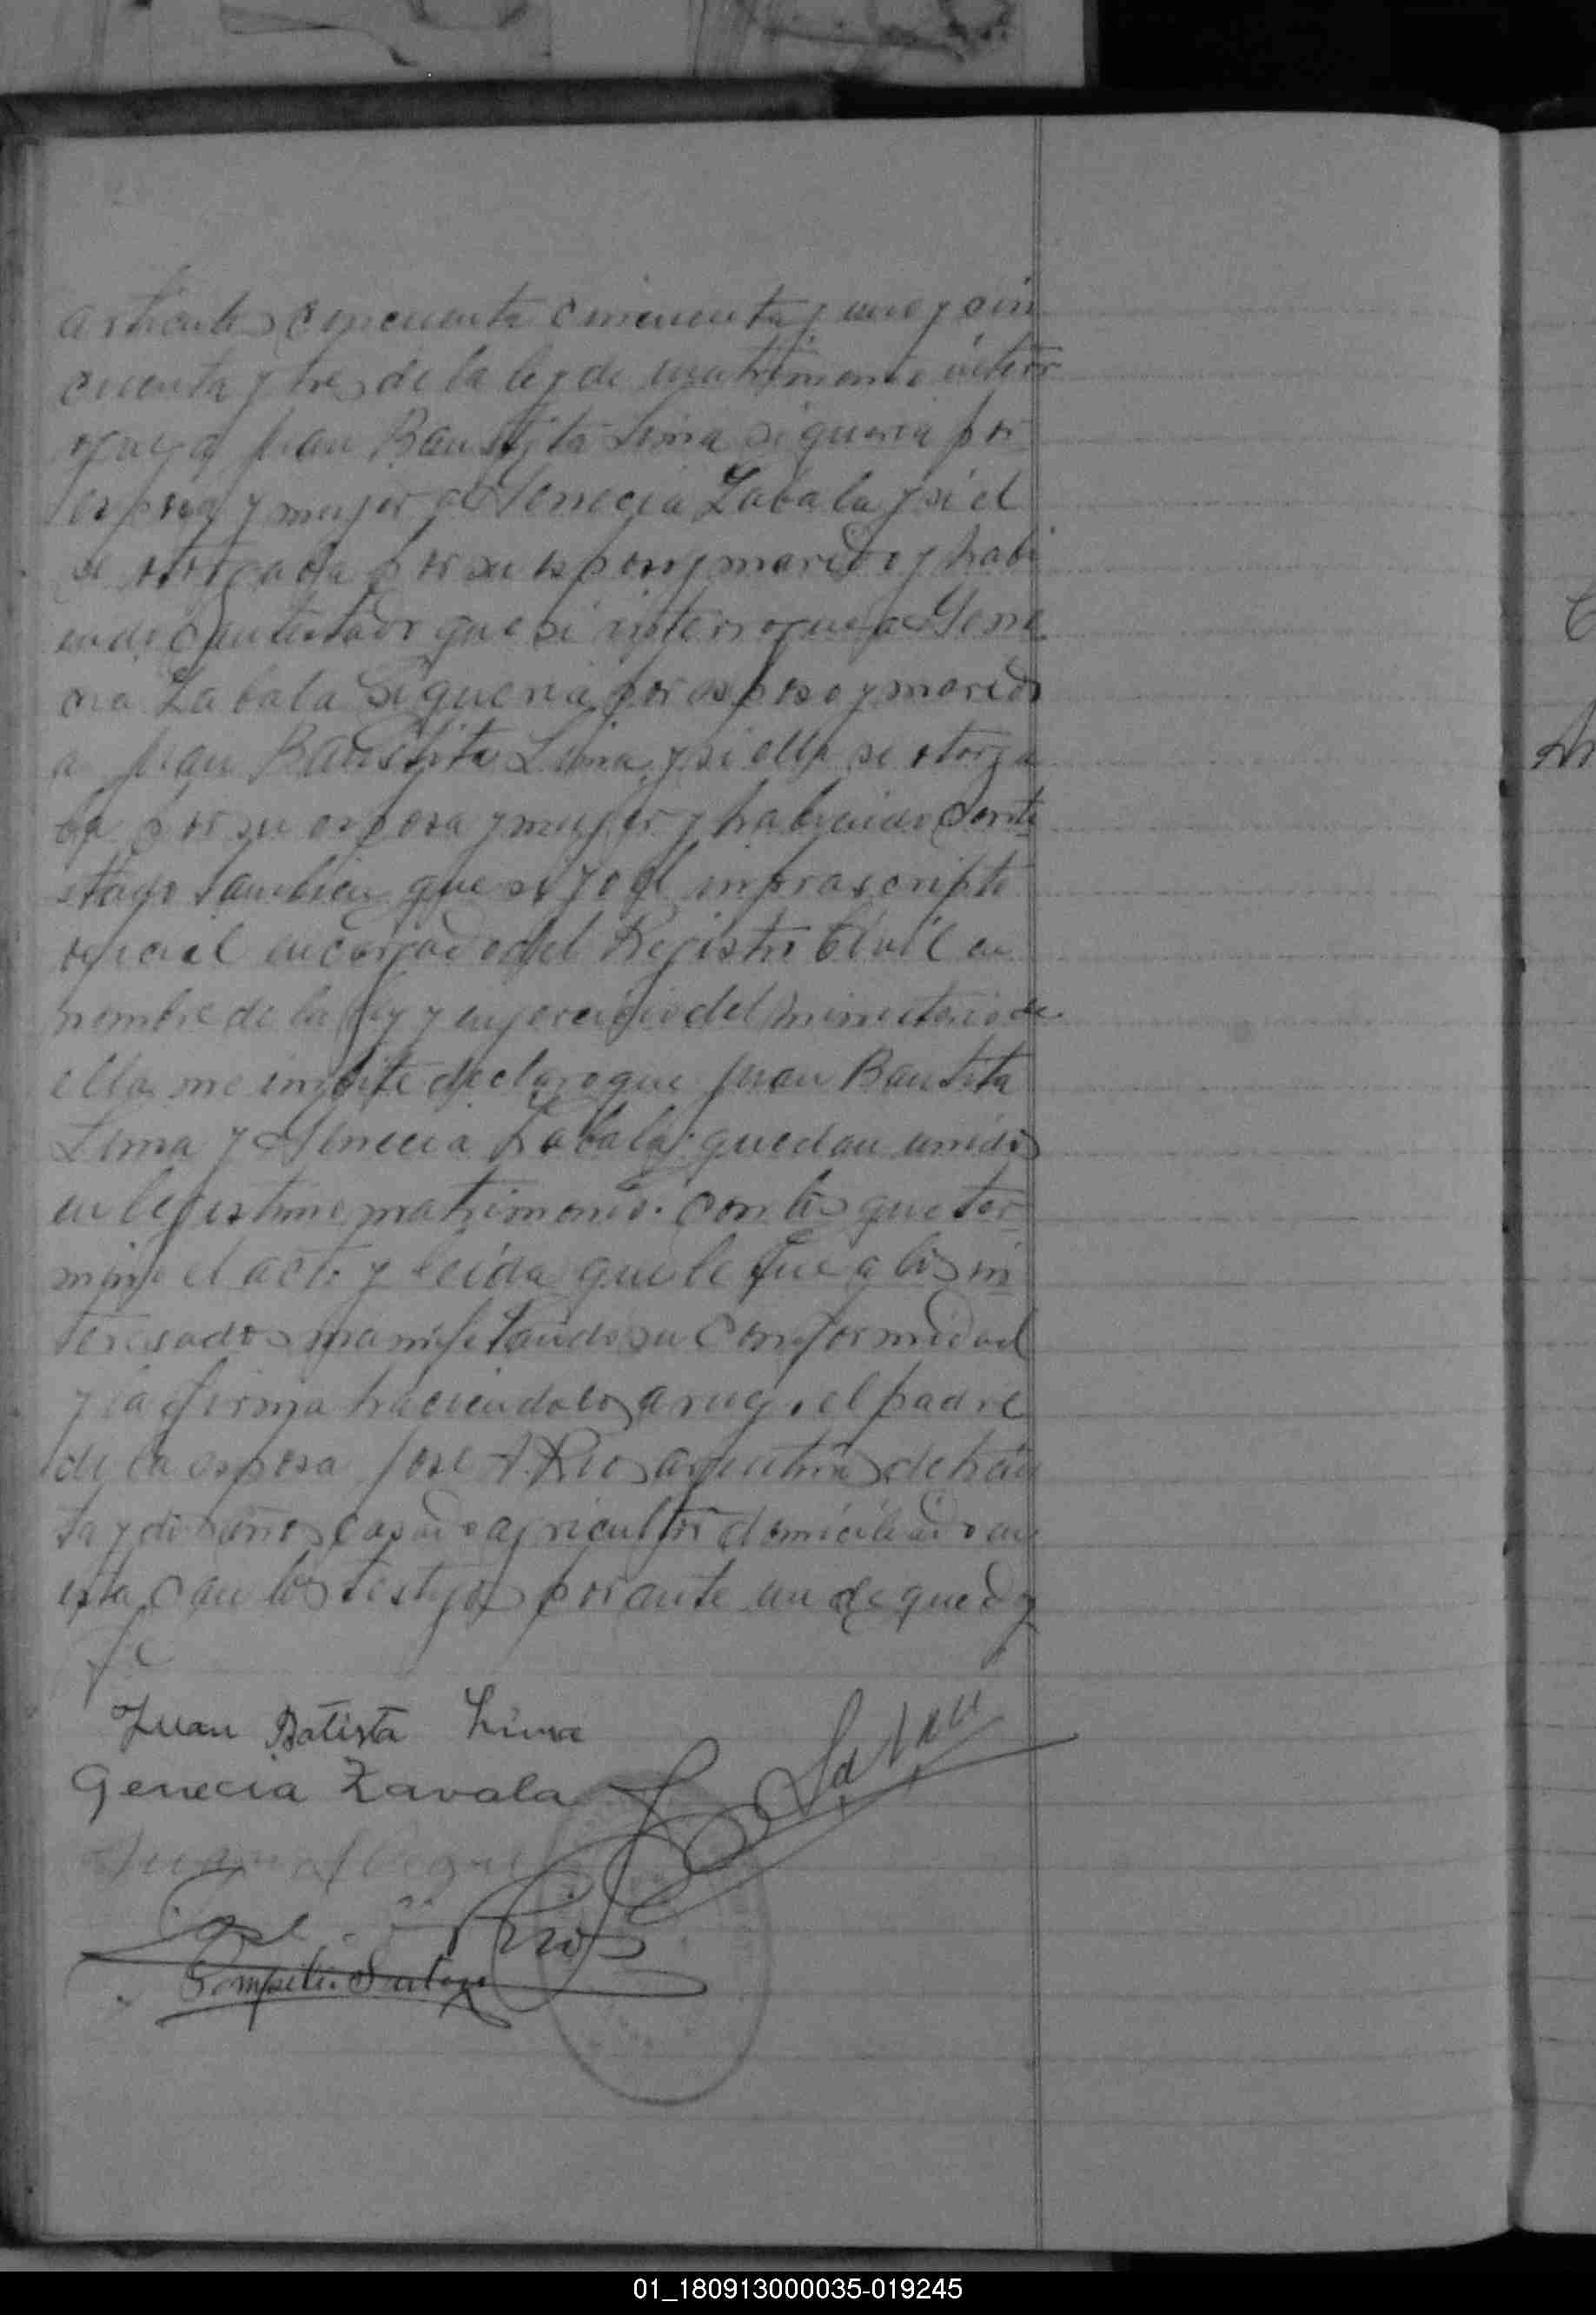 articulos cincuenta cincuenta y uno y cin
cuenta y tres de la ley de matrimonio inter
rogue a Juan Bautista Lima si queria por
esposa y mujer a Genecia Zabala y si el
se otorgaba por su esposo y marido y habi
endo contestado que si interrogue a Gene
cia Zabala si queria por esposo y marido
a Juan Bautista Lima y si ella se otorga
ba por su esposa y mujer y habiendo conte
stado tambien que si yo el infrascripto
oficial encargado del Registro Civil en
nombre de la ley y en jercicio del ministerio de
ella me invite declaro que Juan Bautista
Lima y Genecia Zabala quedan unidos
en lejitimo matrimonio. Con lo que ter
mino el acto y leida que le fue a los in
teresados manifestando su conformidad
y la firma haciendolo a ruego el padre
de la esposa Jose A. Rios argentino de trein
ta y dos años casado agricultor domiciliado en
esta con los testigos por ante mi de que doy
fe
Juan Batista Lima
Genecia Zavala
Jose Rios
01_180913000035-019245